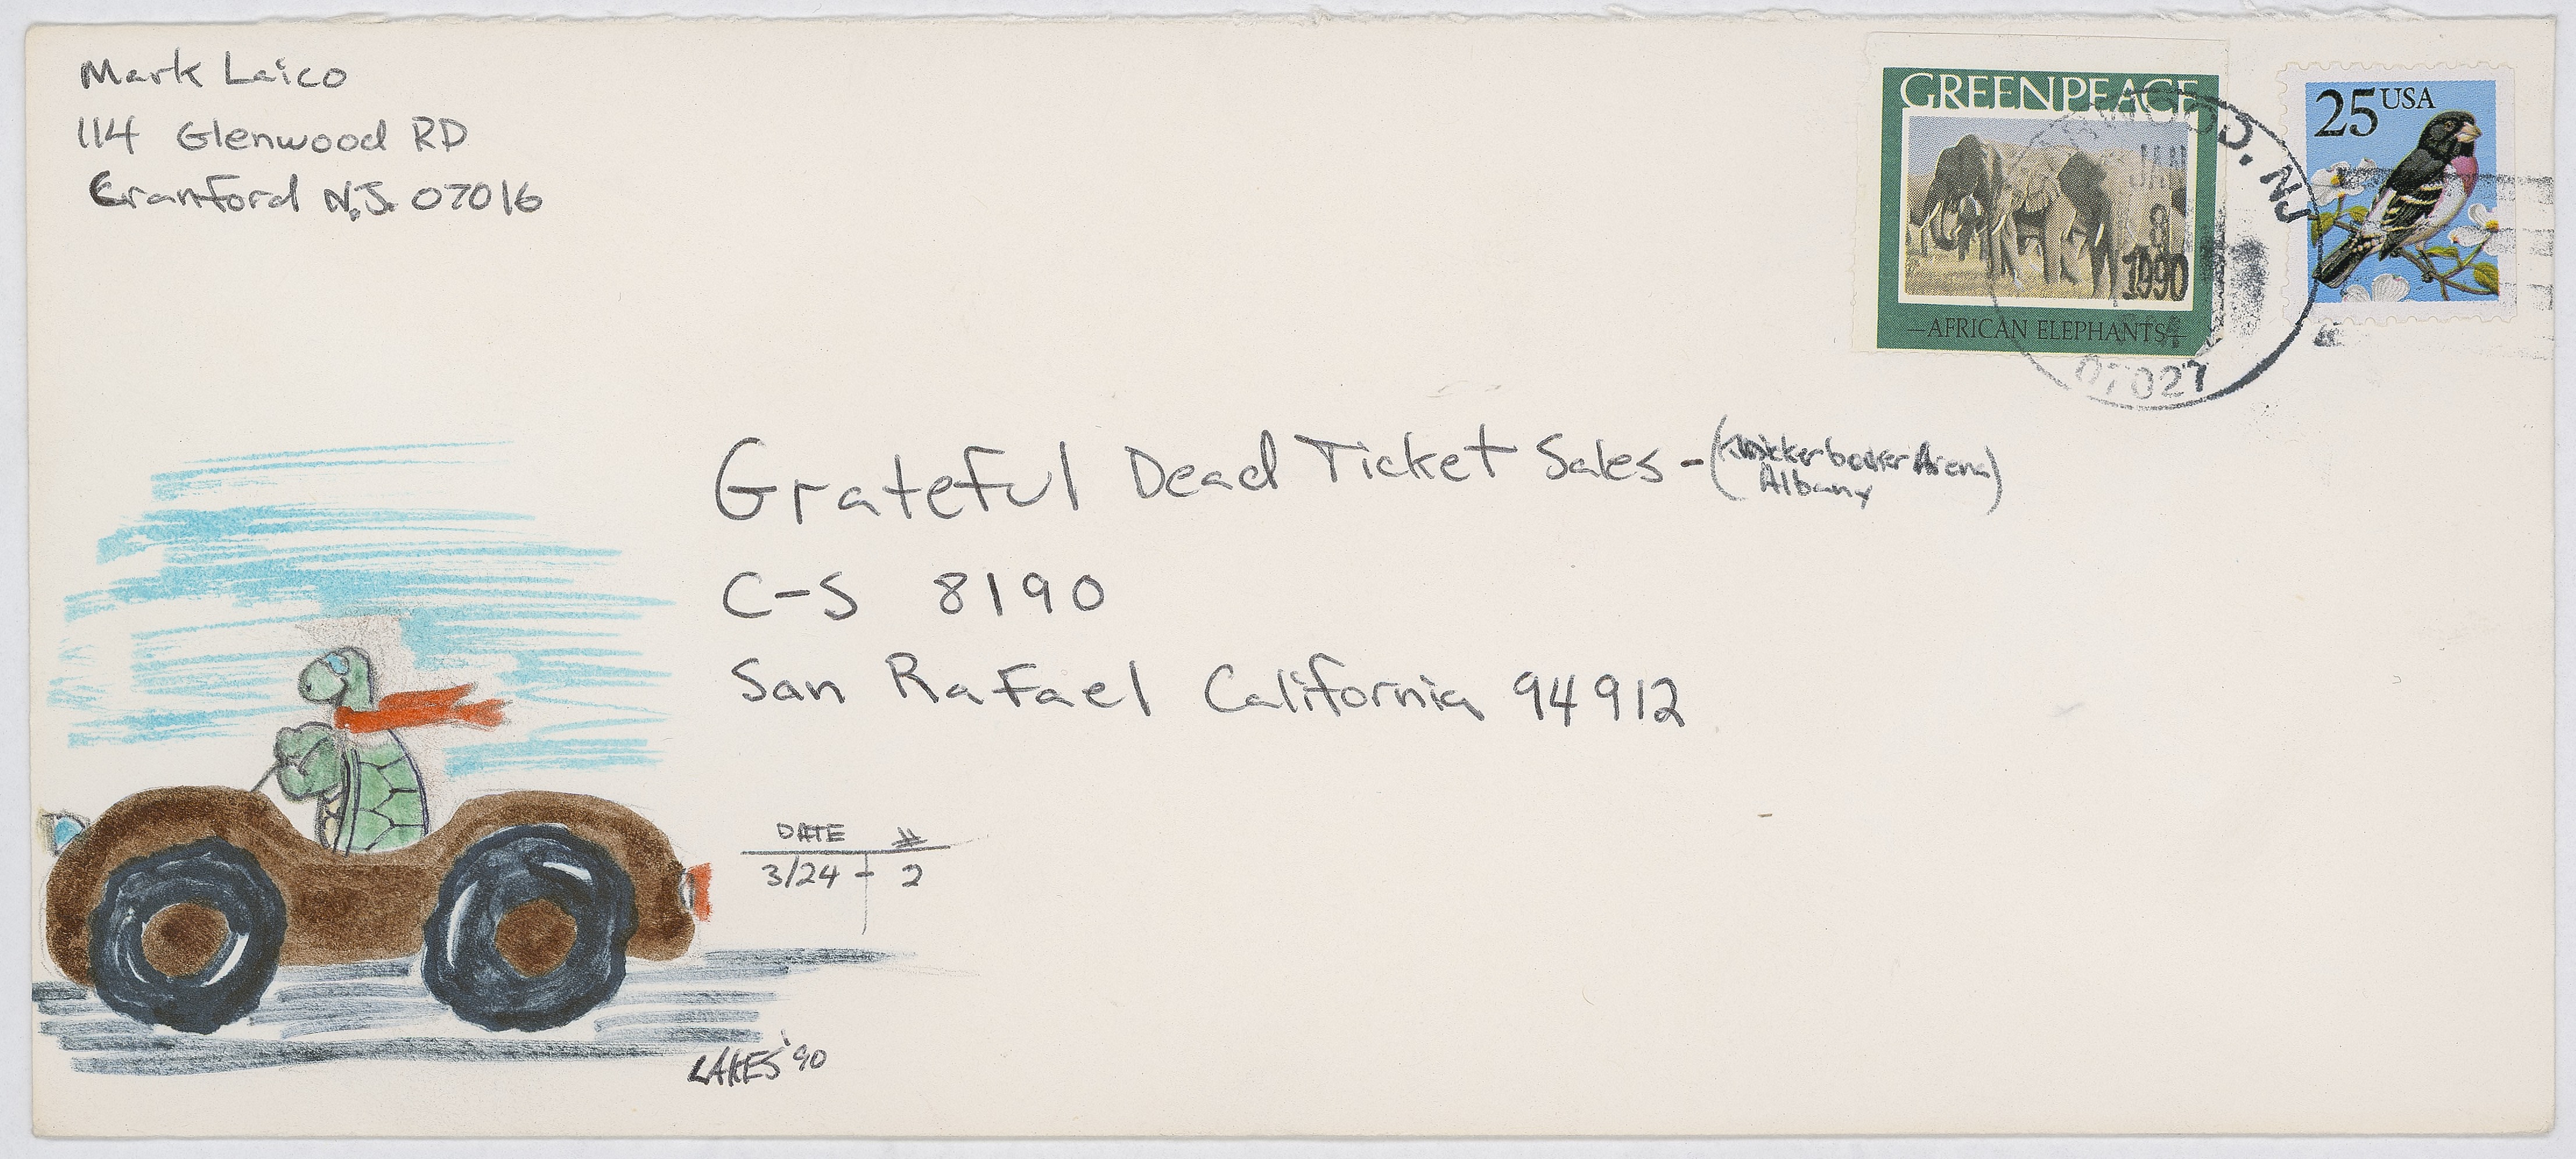 Mark Laico
114 Glenwood RD
Cranford N.J. 07016
GREENPEACE
—AFRICAN ELEPHANTS—
WOOD, NJ
JAN
8
1990
07027
25 USA
Grateful Dead Ticket Sales - (Knickerbocker Arena)
Albany
C-S 8190
San Rafael California 94912
DATE #
3/24 - 2
LAKES '90